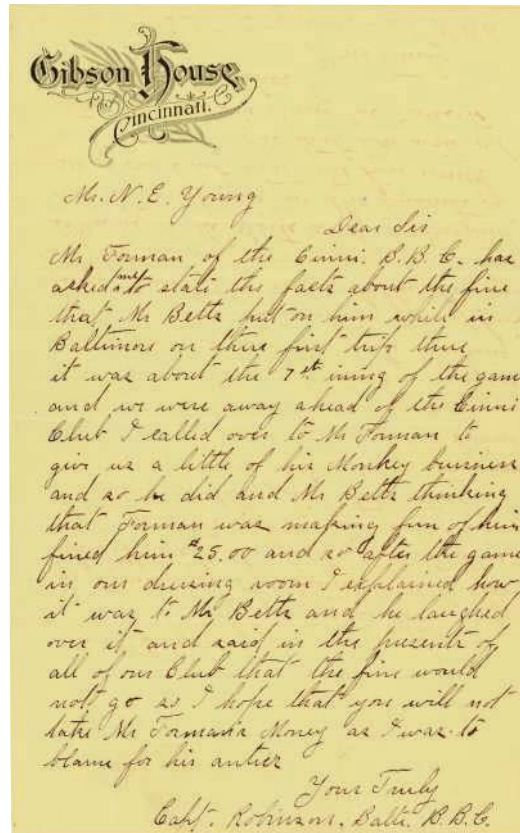 Gibson House
Cincinnati.
Mr. N. E. Young
Dear Sir
Mr Forman of the Cinni. B. B. C. has
asked me to state the facts about the fine
that Mr Betts put on him while in
Baltimore on there first trip there
it was about the 7th ining of the game
and we were away ahead of the Cinni
Club I called over to Mr Forman to
give us a little of his Monkey business
and so he did and Mr Betts thinking
that Forman was making fun of him
fined him $25.00 and so after the game
in our dressing room I explained how
it was to Mr Betts and he laughed
over it and said in the presents of
all of our Club that the fine would
not go so I hope that you will not
take Mr Forman's Money as I was to
blame for his antics
Your Truly
Capt. Robinson. Balto. B. B. C.